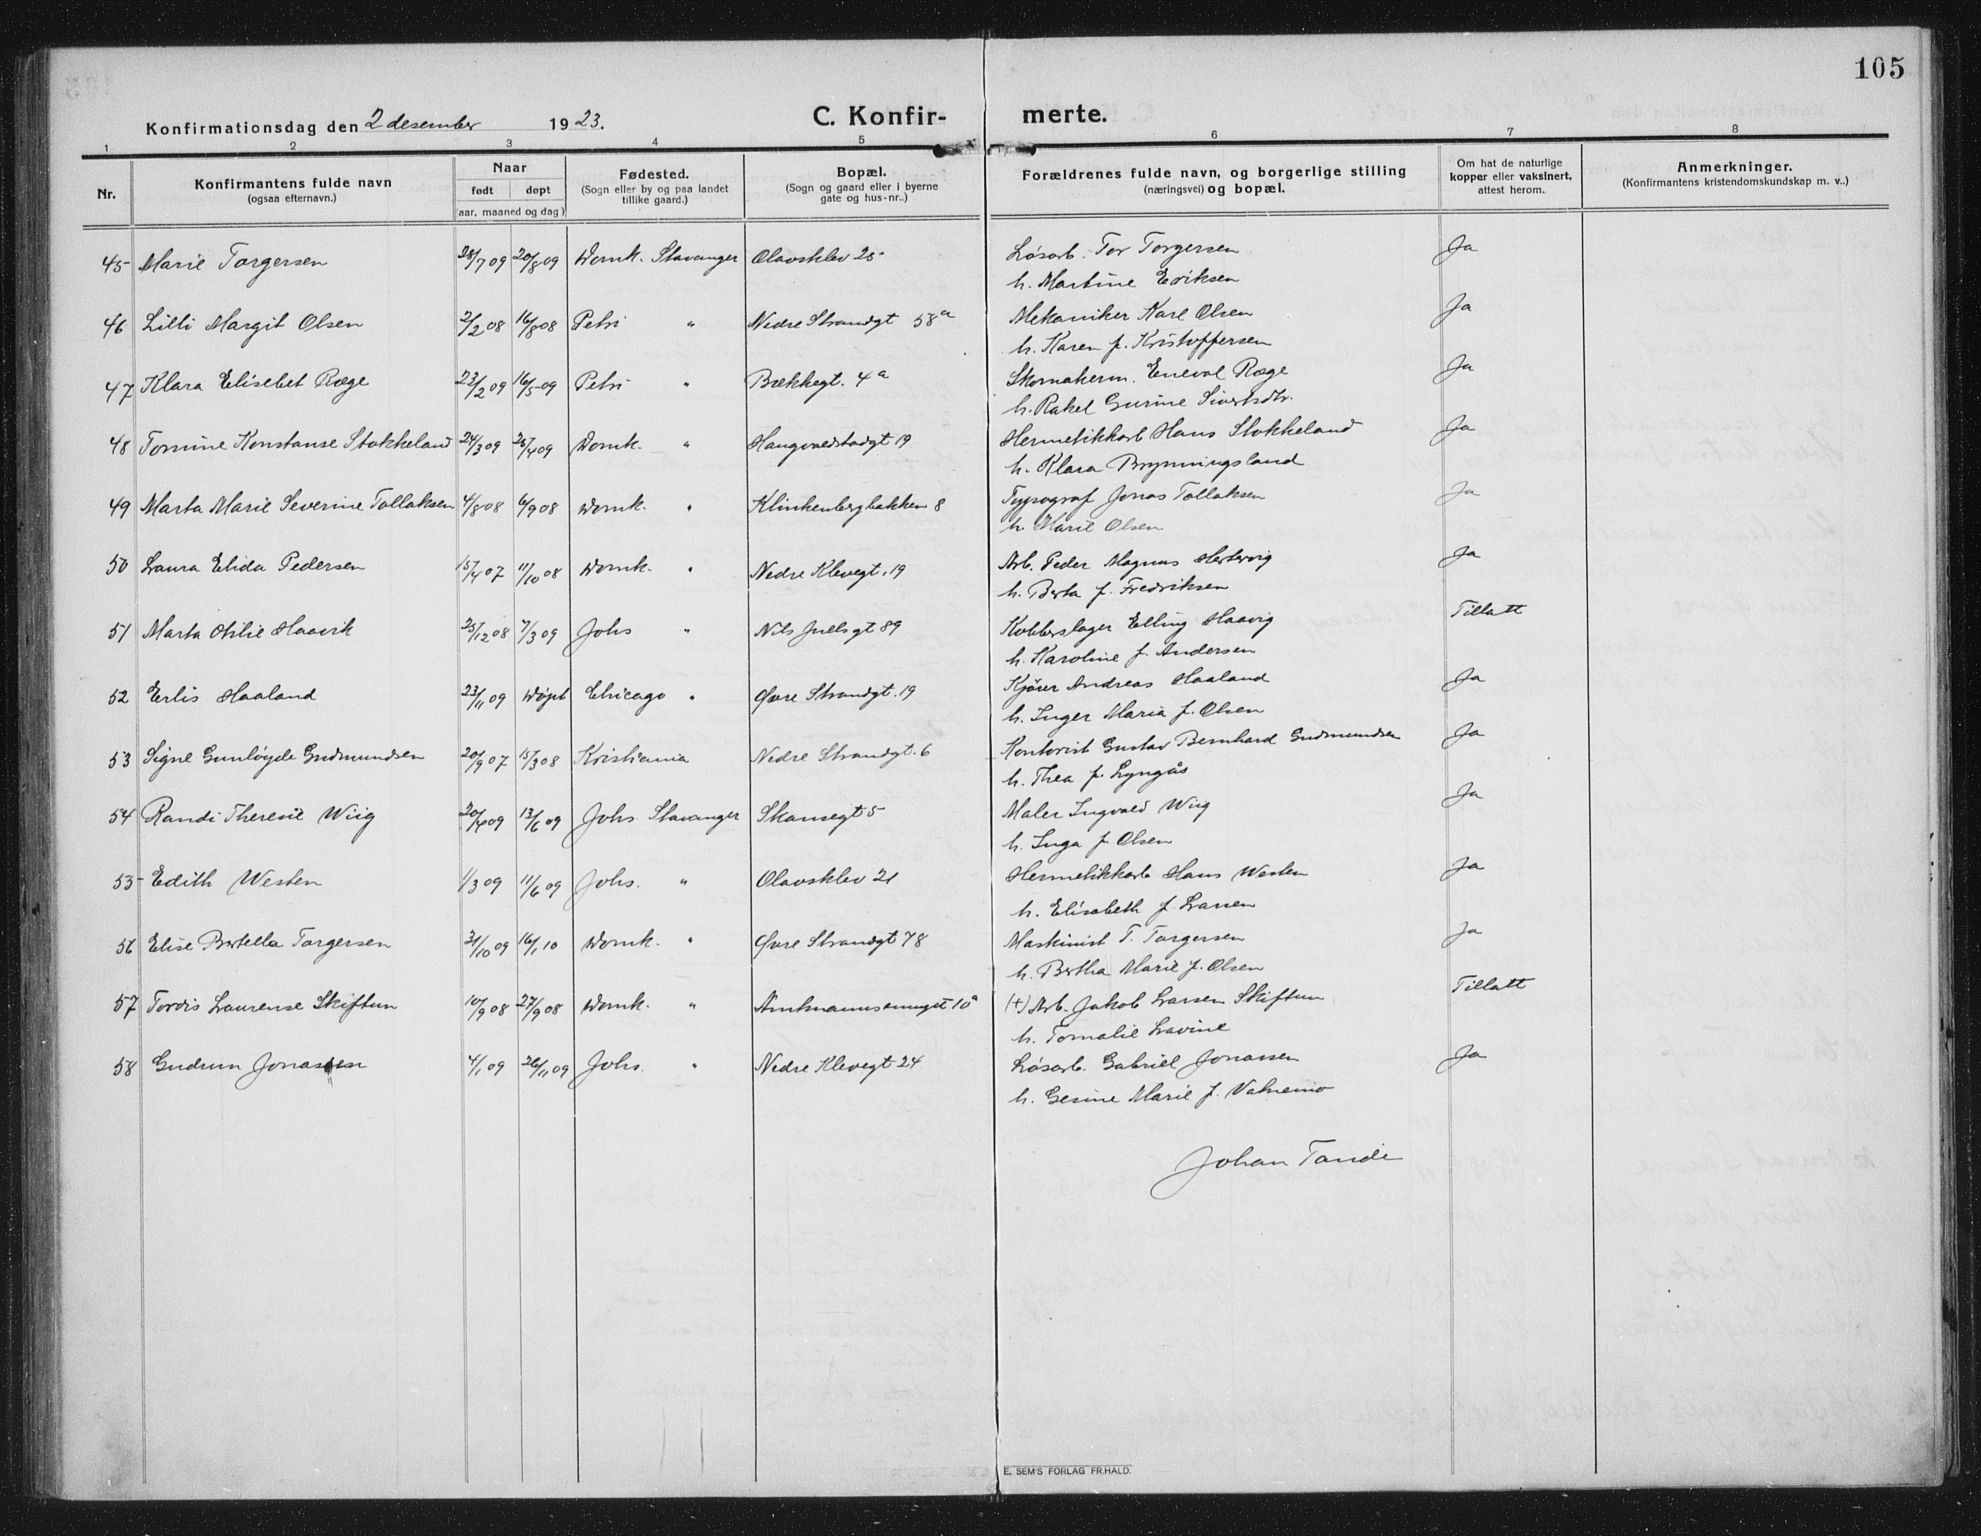 105
Konfirmationsdag den 2 desember 1923. C. Konfir- merte.
1 2 3 4 5 6 7 8
Nr. Konfirmantens fulde navn (ogsaa efternavn.) Naar født døpt (aar, maaned og dag) Fødested. (Sogn eller by og paa landet tillike gaard.) Bopæl. (Sogn og gaard eller i byerne gate og hus-nr..) Forældrenes fulde navn, og borgerlige stilling (næringsvei) og bopæl. Om hat de naturlige kopper eller vaksinert, attest herom. Anmerkninger. (Konfirmantens kristendomskundskap m. v..)
45 Marie Torgersen 28/7 09 20/8 09 Domk. Stavanger Olavsklev 25 Løsarb. Tor Torgersen Ja
h. Martine Eriksen
46 Lilli Margit Olsen 2/2 08 16/8 08 Petri " Nedre Strandgt 58a Mekaniker Karl Olsen Ja
h. Karen f. Kristoffersen
47 Klara Elisebet Ræge 23/2 09 16/5 09 Petri " Bækkegt. 4a Skomakerm. Eneval Ræge Ja
h. Rakel Gurine Sivertsdtr.
48 Tomine Konstanse Stokkeland 24/3 09 25/4 09 Domk. " Haugvaldstadgt 19 Hermetikkarb Hans Stokkeland Ja
h. Klara Brynningsland
49 Marta Marie Severine Tollaksen 4/8 08 6/9 08 Domk. " Klinkenbergbakken 8 Typograf Jonas Tollaksen Ja
h. Marie Olsen
50 Laura Elida Pedersen 15/4 07 11/10 08 Domk. " Nedre Klevegt. 19 Arb. Peder Magnus Hertervig Ja
h. Berta f. Fredriksen
51 Marta Otilie Haavik 25/12 08 7/3 09 Johs " Nils Juelsgt 89 Kobberslager Elling Haavig Tillatt
h. Karoline f. Andersen
52 Erlis Haaland 23/11 09 Døpt Chicago " Øvre Strandgt. 19 Kjører Andreas Haaland Ja
h. Inger Maria f. Olsen
53 Signe Gunløyde Gudmundsen 20/9 07 15/3 08 Kristiania Nedre Strandgt. 6 Kontorist Gustav Bernhard Gudmundsen Ja
h. Thea f. Lyngås
54 Randi Theresie Wiig 20/4 09 13/6 09 Johs Stavanger Skansegt 5 Maler Ingvald Wiig Ja
h. Inga f. Olsen
55 Edith Westen 1/3 09 11/6 09 Johs. " Olavsklev 21 Hermetikkarb Hans Westen Ja
h. Elisabeth f. Larsen
56 Elise Bertella Torgersen 31/10 09 16/1 10 Domk. " Øvre Strandgt 78 Maskinist T. Torgersen Ja
h. Bertha Marie f. Olsen
57 Tordis Laurense Skiftun 10/9 08 27/9 08 Domk. " 10a (+) Arb. Jakob Larsen Skiftun Tillatt
h. Tomalie Lavine
58 Gudrun Jonassen 4/1 09 26/11 09 Johs. " Nedre Klevegt 24 Løsarb. Gabriel Jonassen Ja
h. Gesine Marie f. Vatnemo
Johan Tande
E. SEM'S FORLAG FR.HALD.